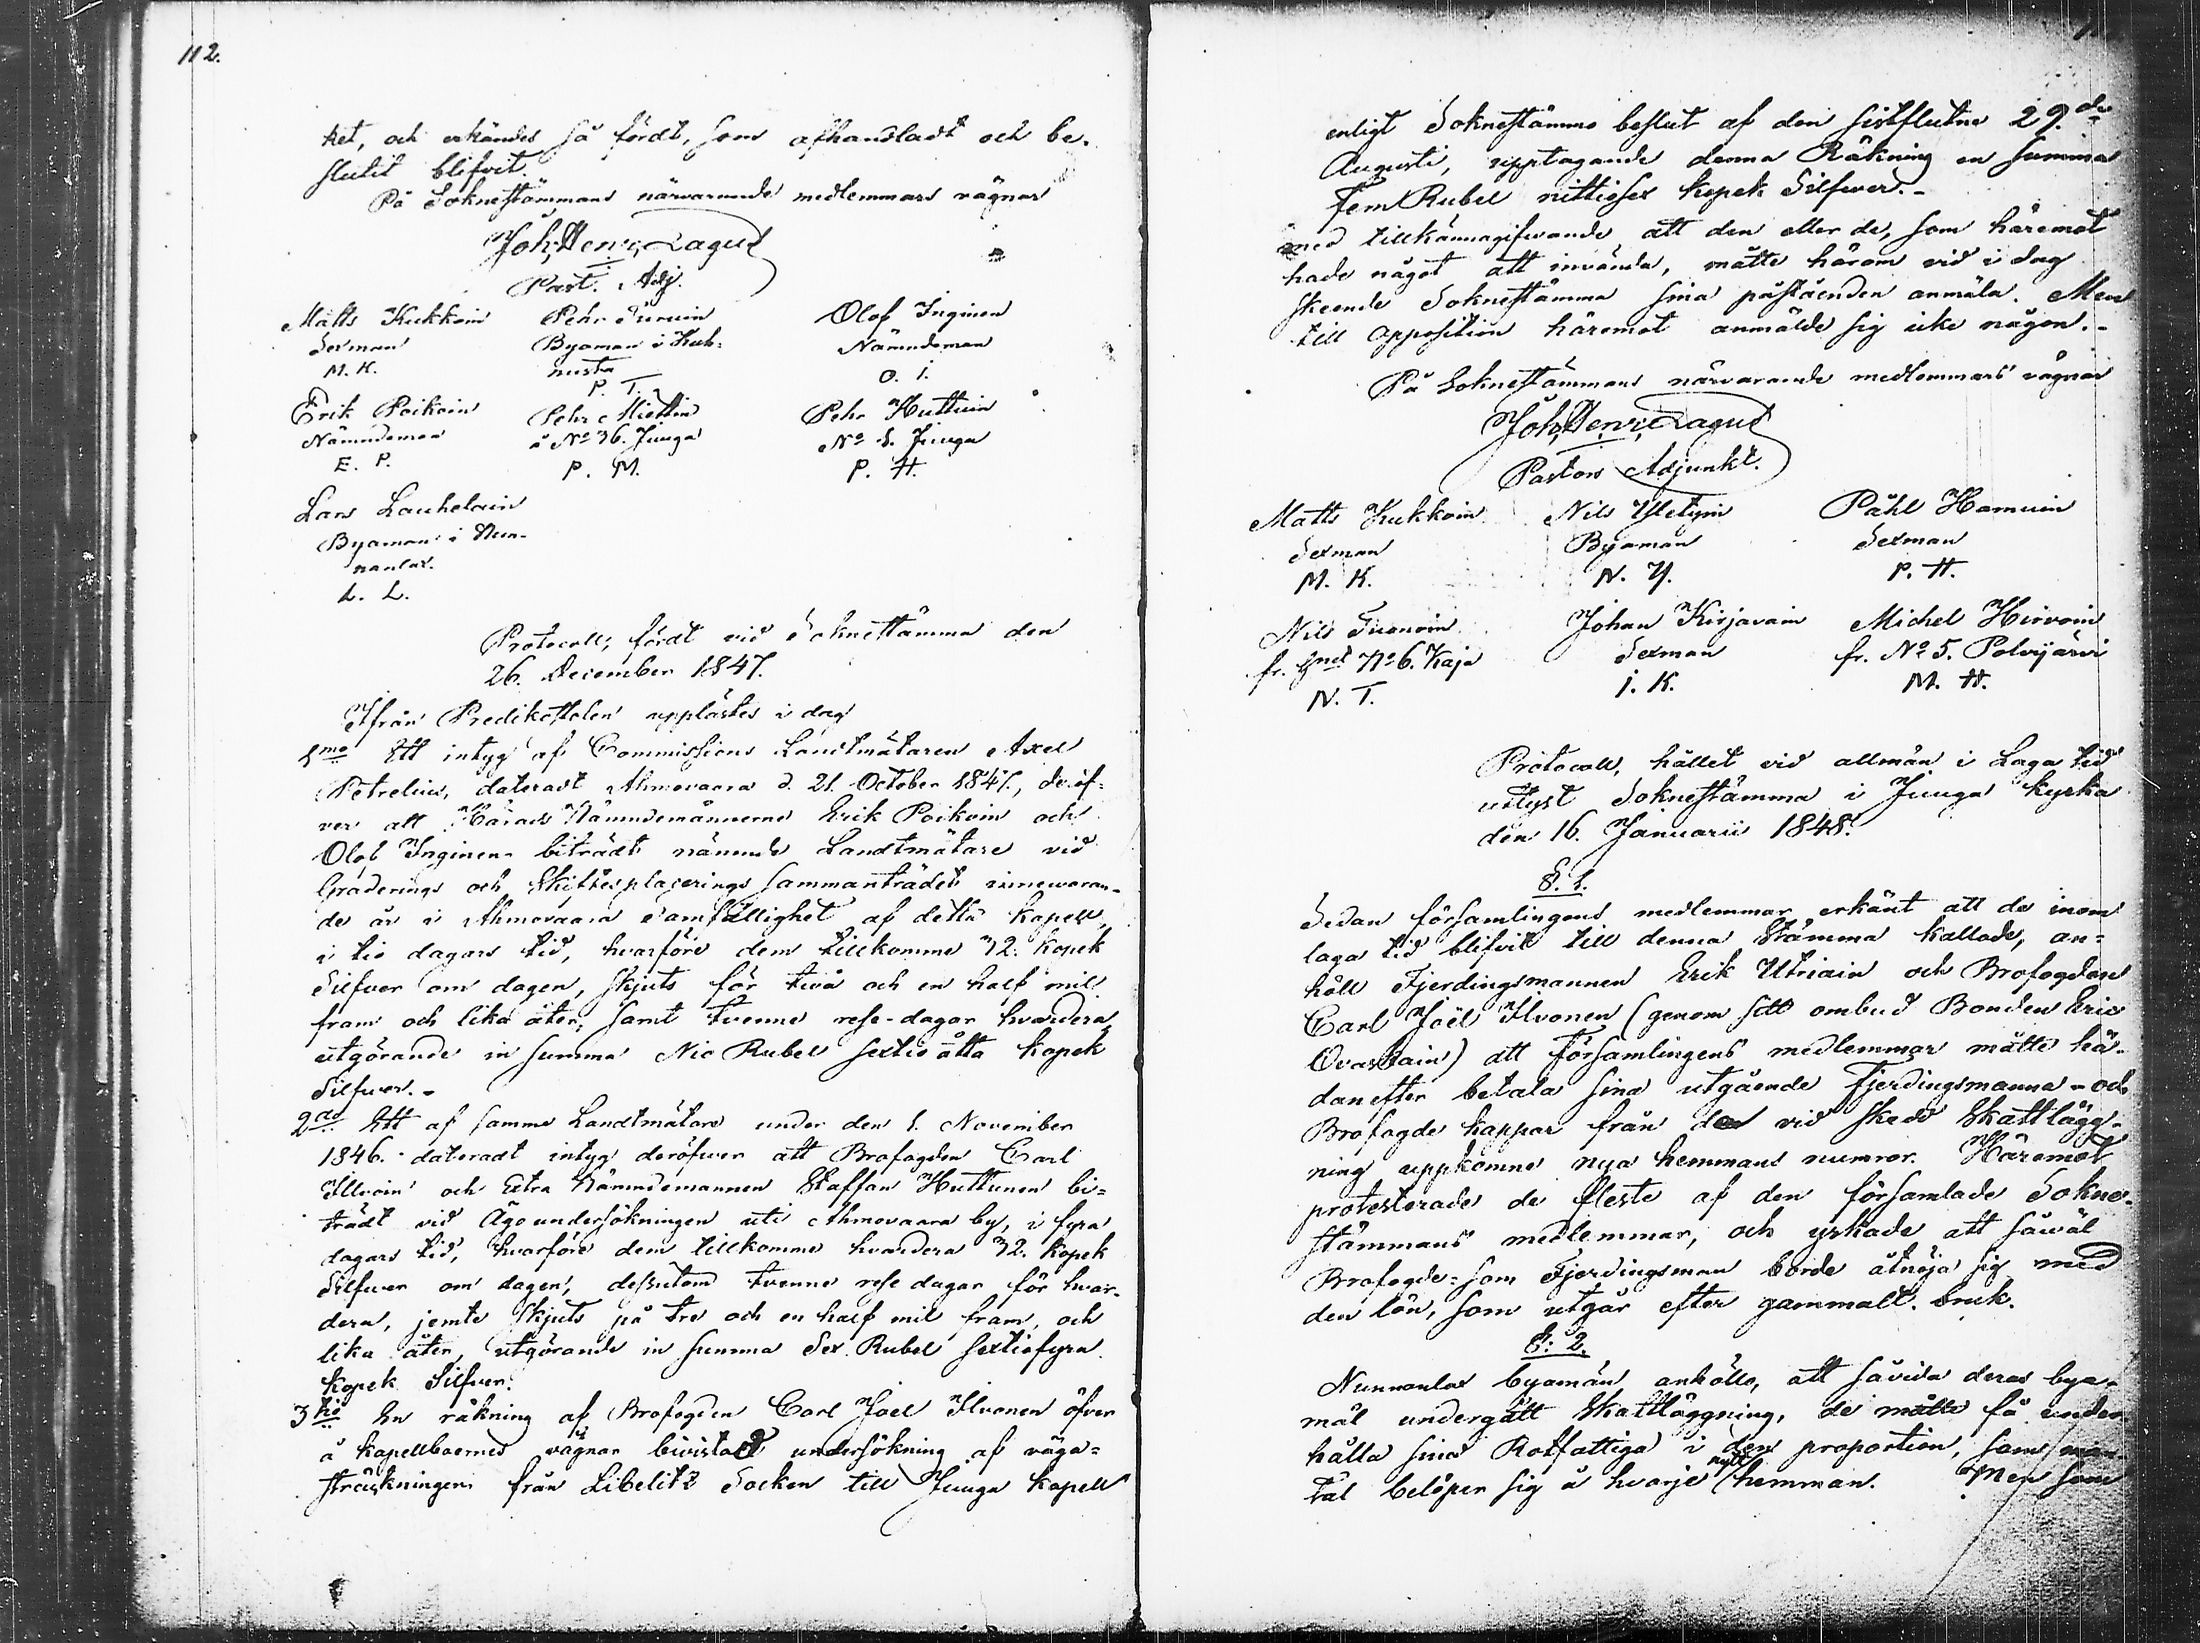 112.
ket, och erkändes så fördt, som afhandladt och be-
slutit blifvit.
På Soknestämmans närvarande medlemmars vägnar
Joh. Henr. Lagus
Past. Adj.
Matts Kukkoin Pehr Turuin Olof Inginen
Sexman Byaman i Kuh- Nämndeman
M. K. nusta O. I.
P. T.
Erik Poikoin Pehr Miettin Pehr Huttuin
Nämndeman å No 36. Juuga No 1. Juuga
E. P. P. M. P. H.
Lars Lauhelain
Byaman i Nun-
nanlax.
L. L.
Protocoll, fördt vid Soknestämma den
26. December 1847.
Ifrån Predikostolen upplästes i dag
1mo Ett intyg af Commissions Landtmätaren Axel
Petrelius, dateradt Ahmovaara d. 21. October 1847, deröf-
ver att Härads Nämndemännerne Erik Poikoin och
Olof Inginen biträdt nämnde Landtmätare vid
Graderings och Skiftesplagerings sammanträdet innewaran-
de år i Ahmovaara Samfällighet af detta kapell,
i tio dagars tid, hvarföre dem tillkomme 32. kopek
Silfver om dagen, skjuts för tivå och en half mil
fram och lika åter, samt tvenne rese-dagar hvardera,
utgörande in summa Nio Rubel sextio åtta kopek
Silfwer.-
2do Ett af samme Landtmätare under den 1. November
1846. dateradt intyg deröfwer att Brofogden Carl
Illvoin och Extra Nämndemannen Staffan Huttunen bi-
trädt vid Ägoundersökningen uti Ahmovaara by, i fyra
dagars tid, hvarföre dem tillkomme hvardera 32. kopek
Silfwer om dagen, dessutom tvenne rese dagar för hvar-
dera, jemte skjuts på tre och en half mil fram, och
lika åter, utgörande in summa Sex Rubel sextiofyra
kopek Silfver.
3tio En räkning af Brofogden Carl Joel Ilvonen öfver
å kapellboernes vägnar bivistad undersökning af väga-
sträckningen från Libelitz Socken till Juuga kapell
enligt Soknestämmo beslut af den sistflutne 29.de
Augusti, upptagande denna Räkning en summa
Fem Rubel nittiosex kopek Silfwer.-
med tillkännagifwande att den eller de, som häremot
hade något att invända, måtte härom vid i dag
skeende Soknestämma sina påståenden anmäla. Men
till opposition häremot anmälde sig icke någon.-
På Soknestämmans närvarande medlemmars vägnar
Joh. Henr. Lagus
Pastors Adjunkt.
Matts Kukkoin Nils Yletyin Påhl Hamuin
Sexman Byaman Sexman
M. K. N. Y. P. H.
Nils Tuonoin Johan Kirjavain Michel Hirvoin
fr. No 6. Kaja Sexman fr. No 5. Polvijärvi
N. T. I. K. M. H.
Protocoll, hållet vid allmän i Laga tid
utlyst Soknestämma i Juuga kyrka
den 16. Januarii 1848.
§. 1.
Sedan församlingens medlemmar erkänt att de inom
laga tid blifvit till denna Stämma kallade, an-
höll Fjerdingsmannen Erik Utriain och Brofogden
Carl Joël Ilvonen (genom sitt ombud Bonden Eric
Ovaskain) att Församlingens medlemmar måtte hä-
danefter betala sina utgående Fjerdingsmanna- och
Brofogde kappar från den vid skedd Skattlägg-
ning uppkomne nya hemmans numror. Häremot
protesterade de fleste af den församlade Sokne-
stämmans medlemmar, och yrkade att såwäl
Brofogde- som Fjerdingsman borde åtnöja sig med
den lön, som utgår efter gammalt bruk.
§: 2.
Nunnanlax byamän anhöllo, att såvida deras bya-
mål undergått Skattläggning, de måtte få under
hålla sina Rotfattiga i den proportion, som man-
tal belöper sig å hvarje nytt hemman. Men som